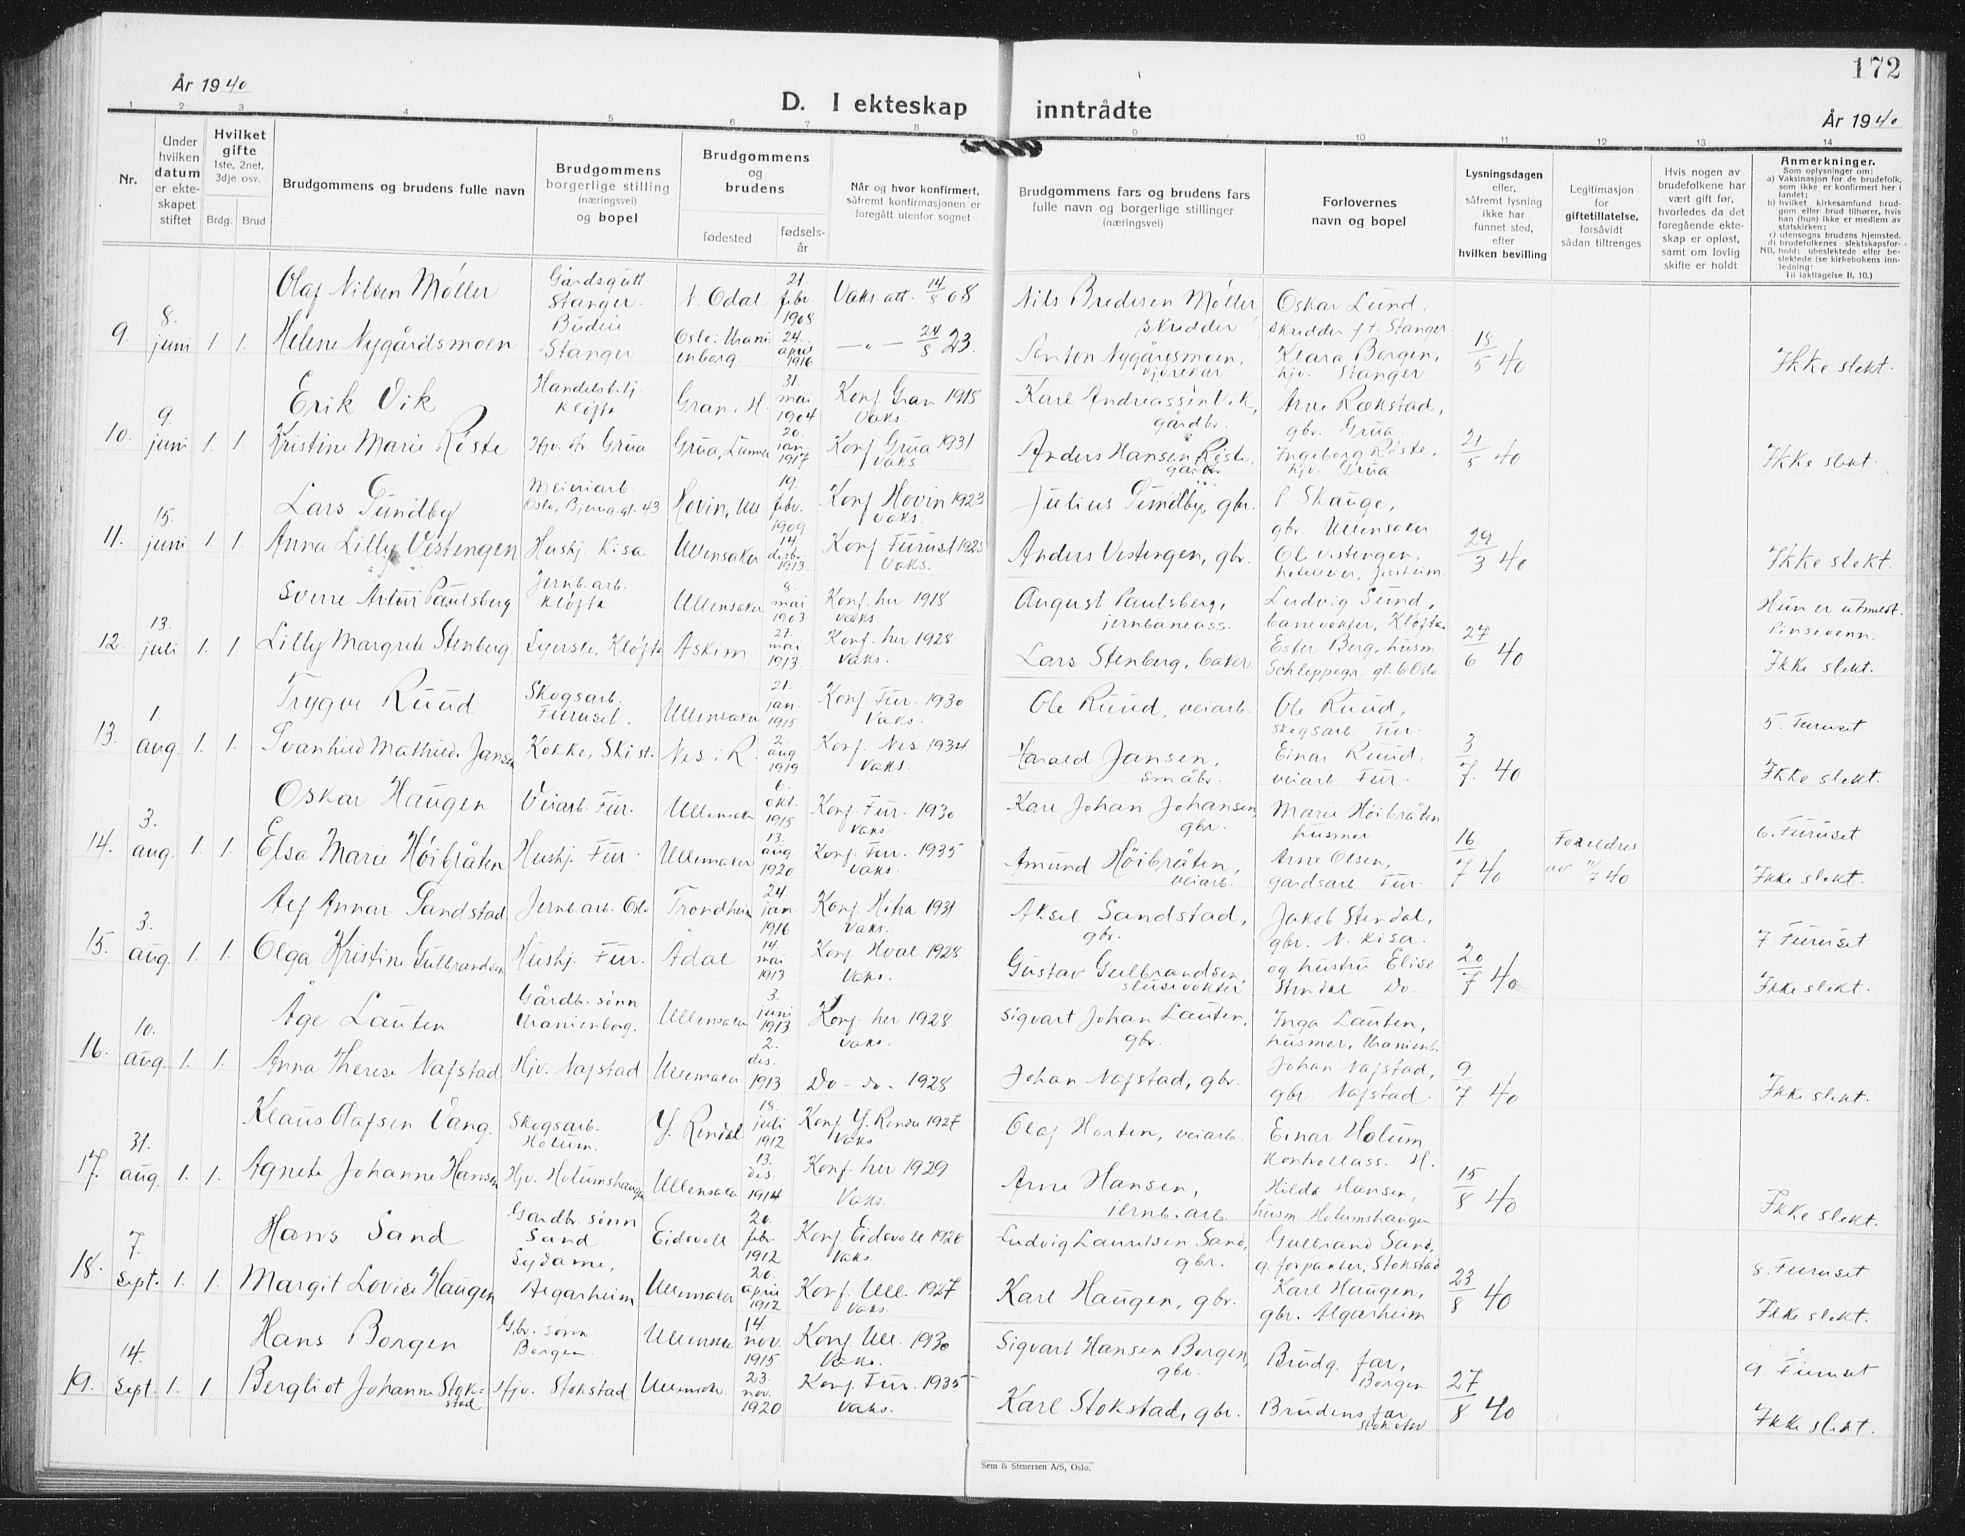 172
År 1940
D. I ekteskap inntrådte
År 1940
1 2 3 4 5 6 7 8 9 10 11 12 13 14
Nr.
Under hvilken datum er ekteskapet stiftet
Hvilket gifte 1ste, 2net, 3dje osv.
Brdg. Brud
Brudgommens og brudens fulle navn
Brudgommens borgerlige stilling (næringsvei) og bopel
Brudgommens og brudens
fødested fødselsår
Når og hvor konfirmert, såfremt konfirmasjonen er foregått utenfor sognet
Brudgommens fars og brudens fars fulle navn og borgerlige stillinger (næringsvei)
Forlovernes navn og bopel
Lysningsdagen eller, såfremt lysning ikke har funnet sted, efter hvilken bevilling
Legitimasjon for giftetillatelse, forsåvidt sådan tiltrenges
Hvis nogen av brudefolkene har vært gift før, hvorledes da det foregående ekteskap er opløst, samt om lovlig skifte er holdt
Anmerkninger.
Som oplysninger om:
a) Vaksinasjon for de brudefolk, som ikke er konfirmert her i landet;
b) hvilket kirkesamfund brudgom eller brud tilhører, hvis han (hun) ikke er medlem av statskirken;
c) utensogns brudens hjemsted.
d) brudefolkenes slektskapsforhold: ubeslektede eller beslektede (se kirkebokens innledning:
NB. Til iakttagelse II. 10.)
9. 8. juni 1. 1.
Olaf Nilsen Møller Gårdsgutt Stanger N. Odal 21 febr. 1908 Vaks. att. 14/8 08 Nils Bredesen Møller, skredder Oskar Lund, skredder f.t. Stanger
Helene Nygårdsmoen Budeie Stanger Oslo: Uranienborg. 24. april 1916 — „ — 24/8 23. Nygårdsmoen, kjørekar. Klara Borgen, hjv. Stanger 18/5 40 Ikke slekt.
10. 9. juni 1. 1.
Erik Vik Handelsbetj. Kløfta Gran, H. 31. mai 1904 Konf. Gran 1918 Vaks. Karl Andreassen Vik, gårdbr. Arne Rækstad, gbr. Grua
Kristine Marie Røste Hjv. Grua Grua, Lunner 20. jan. 1917 Konf. Grua 1931 Vaks Anders Hansen Røste, gårdbr. Ingeborg Røste, hjv. Grua 21/5 40 Ikke slekt.
11. 15. juni 1. 1.
Lars Gundby Meieriarb. Oslo, 43 Hovin, Ull. 19. febr. 1909 Konf. Hovin 1923 Vaks. Julius Gundby, gbr. P. Skauge, gbr. Ullensaker
Anna Lilly Vestengen Hushj. Kisa Ullensaker 14. desbr. 1913. Konf. Furuset 1928 Vaks. Anders Vestengen, gbr. Ol. Vestengen, hoteleier, Jessheim. 29/3 40 Ikke slekt.
12. 13. juli 1. 1.
Sverre Artur Paulsberg Jernb. arb. Kløfta Ullensaker 8. mai 1903 Konf. her 1918 Vaks. August Paulsberg, jernbaneass. Ludvig Sund, banevokter, Kløfta Hun er utmeldt. Pinsevenn.
Lilly Margrete Stenberg Syerske, Kløfta Askim 27. mai 1913. Konf. her 1928 Vaks. Lars Stenberg, baker Ester Berg, husm. Schleppegr. gt. 6 Oslo 27/6 40 Ikke slekt.
13. 1. aug. 1. 1.
Trygve Ruud Skogsarb. Furuset. Ullensaker 21. jan. 1915 Konf. Fur. 1930 Vaks. Ole Ruud, veiarb. Ole Ruud, skogsarb. Fur. 5. Furuset
Svanhild Mathilde Jansen Kokke, Ski st. Nes i R. 2. aug 1919 Konf. Nes 1934 Vaks. Harald Jansen, småbr. Einar Ruud, veiarb. Fur. 3/7. 40 Ikke slekt.
14. 3. aug. 1. 1.
Oskar Haugen Veiarb. Fur. Ullensaker 6. okt. 1915 Konf. Fur. 1930 Vaks. Karl Johan Johansen, gbr. Marie Høibråten husmor 6. Furuset
Elsa Marie Høibråten Hushj. Fur. Ullensaker 13. aug 1920 Konf. Fur. 1935 Vaks. Amund Höibråten, veiarb. Arne Olsen, gardsarb. Fur. 16/7 40 Foreldres av 11/7 40 Ikke slekt.
15. 3. aug. 1. 1.
Alf Annar Sandstad Jernb. arb. Oslo Trondheim 24 jan. 1916 Konf. Hitra 1931 Vaks. Aksel Sandstad, gbr. Jakob Stendal, gbr. N. Kisa. 7 Furuset
Olga Kristine Gulbrandsen Hushj. Fur. Ådal 14. mai 1913 Konf. Hval 1928 Vaks. Gustav Gulbrandsen, slusevokter og hustru Elise Stendal Do. 20/7 40 Ikke slekt.
16. 10. aug. 1. 1.
Åge Lauten Gårdbr. sønn Uranienborg. Ullensaker 3. juni 1913 Konf. her 1928 Vaks. Sigvart Johan Lauten, gbr. Inga Lauten, husmor, Uranienb.
Anna Therese Nafstad Hjv. Nafstad Ullensaker 2. des. 1913 Do – do. 1928 Johan Nafstad, gbr. Johan Nafstad, gbr. Nafstad. 9/7 40 Ikke slekt.
17. 31. aug. 1. 1.
Klaus Olafsen Vang. Skogsarb. Holum. Y. Rendal 18. juli 1912 Konf. Y. Rendal 1927 Vaks. Olaf Horten, veiarb. Einar Holum Kontrollass. H.
Agnete Johanne Hansen Hjv. Holumshaugen Ullensaker 13. des. 1914 Konf. her 1929 Vaks. Arne Hansen, jernb. arb. Hilda Hansen, husm. Holumshaugen 15/8 40 Ikke slekt.
18. 7. sept. 1. 1.
Hans Sand Gardbr. sønn Sand Eidsvoll 20. febr. 1912 Konf. Eidsvoll 1926 Vaks. Ludvig Lauritsen Sand, gbr. Gulbrand Sand, g. forpakter, Stokstad 8. Furuset
Margit Lovise Haugen Sydame, Algarheim Ullensaker 20. april 1912 Konf. Ull. 1927 Vaks. Karl Haugen, gbr. Karl Haugen, gbr. Algarheim 23/8 40 Ikke slekt.
19. 14. sept. 1. 1.
Hans Borgen G.br. sønn Borgen Ullensaker 14. nov. 1915 Konf. Ull. 1930 Vaks. Sigvart Hansen Borgen, gbr. Brudg. far, Borgen 9. Furuset
Bergliot Johanne Stokstad Hjv. Stokstad Ullensaker 23. nov. 1920 Konf. Fur. 1935 Vaks. Karl Stokstad, gbr. Brudens far Stokstad 27/8 40 Ikke slekt.
Sem & Stenersen A/S, Oslo.